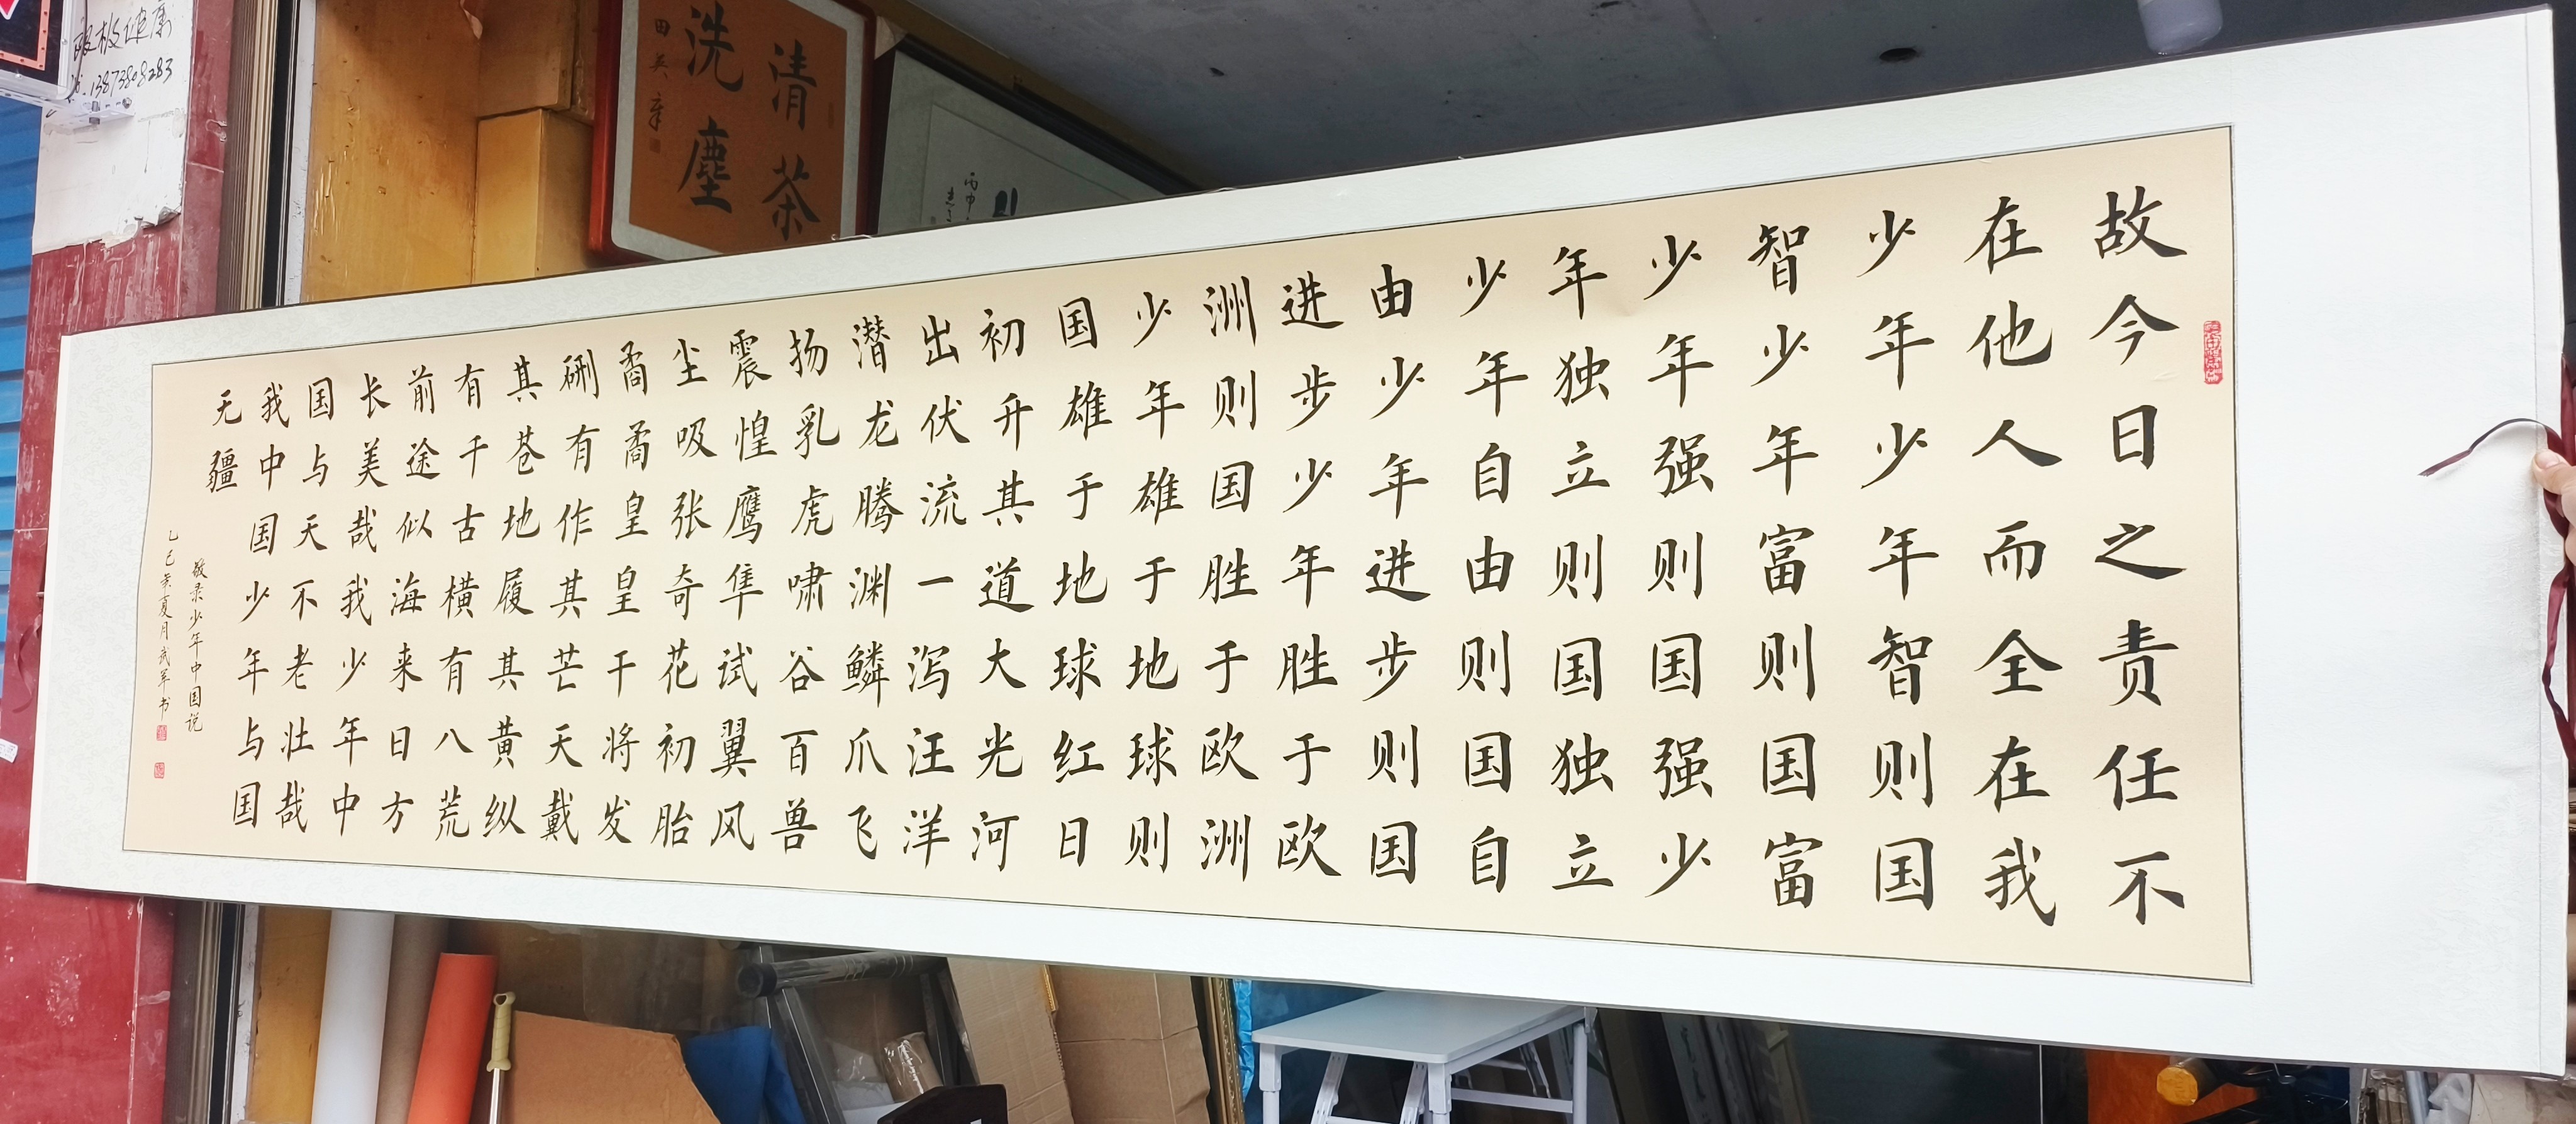 故今日之责任不
在他人而全在我
少年少年智则国
智少年富则国富
少年强则国强少
年独立则国独立
少年自由则国自
由少年进步则国
进步少年胜于欧
洲则国胜于欧洲
少年雄于地球则
国雄于地球红日
初升其道大光河
出伏流一泻汪洋
潜龙腾渊鳞爪飞
扬乳虎啸谷百兽
震惶鹰隼试翼风
尘吸张奇花初胎
矞矞皇皇干将发
硎有作其芒天戴
其苍地履其黄纵
有千古横有八荒
前途似海来日方
长美哉我少年中
国与天不老壮哉
我中国少年与国
无疆
敬录少年中国说
乙巳年夏月武军书
清茶
洗塵
田英章
丙申
健康
13873808283